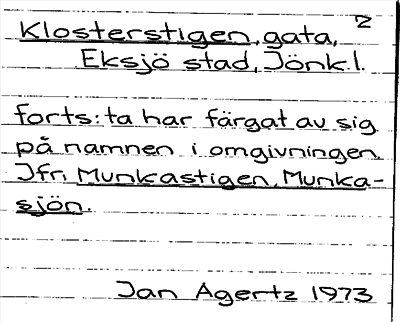 2
Klosterstigen, gata,
Eksjö stad, Jönk.l.
forts: ta har färgat av sig
på namnen i omgivningen.
Jfr. Munkastigen, Munka-
sjön.
Jan Agertz 1973